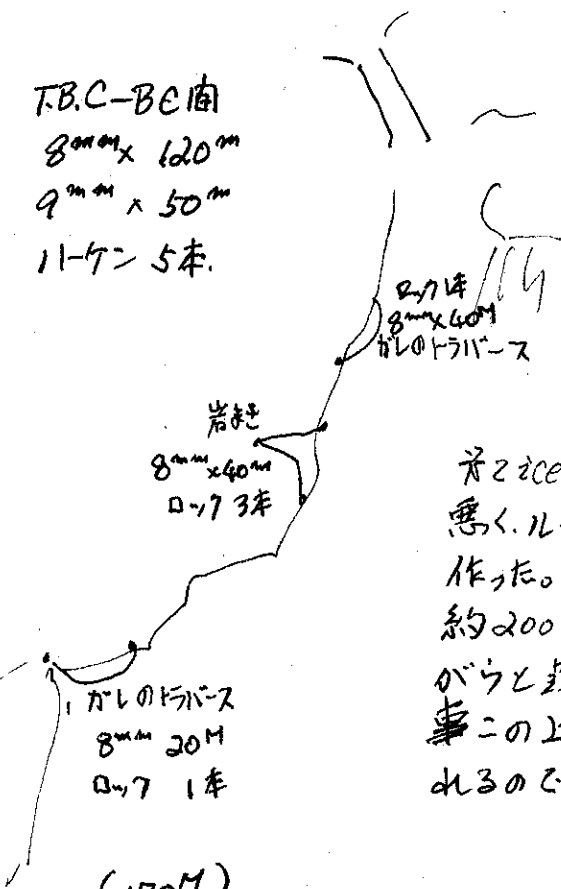 T.B.C-BC間
8mm x 120m
9mm x 50m
ハーケン 5本.
ロック1本
8mm x 40M
ガレのトラバース
岩まき
8mm x 40m
ロック 3本
ガレのトラバース
8mm 20M
ロック 1本
ice
悪く.ル
作った。
約200
がウと
事この上
れるので
(170M)